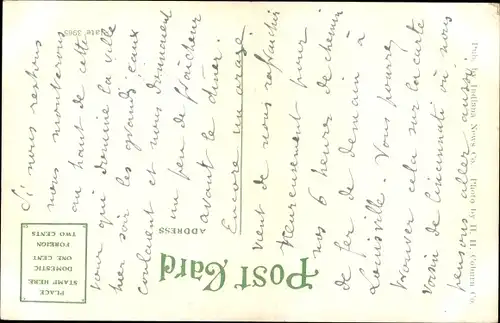 Si nous restons
nous monterons
au haut de cette
tour qui domine la ville
hier soir les grands eaux
coulaient et nous donnaient
un peu de fraîcheur
avant le dîner.
Encore un orage
vient de nous rafraîchir
Heureusement pour
nos 6 heures de chemin
de fer de demain à
Louisville. Vous pouvez
trouver cela sur la carte
voisin de Cincinnati où nous
pensons aller aussi.
Post Card
ADDRESS
PLACE
STAMP HERE
DOMESTIC
ONE CENT
FOREIGN
TWO CENTS
Pub. by Indiana News Co. Photo by H. H. Coburn Co.
3965